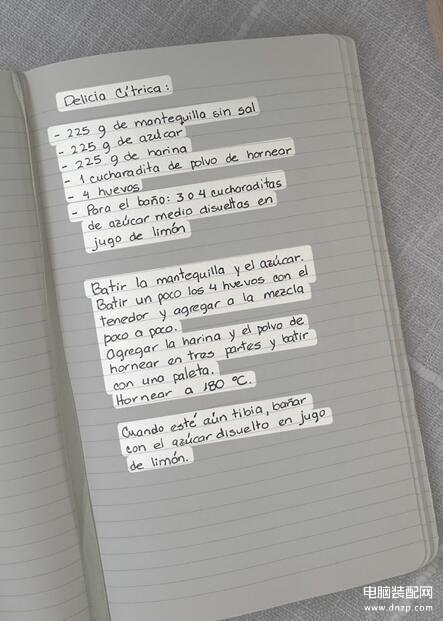 Delicia Cítrica:
- 225 g de mantequilla sin sal
- 225 g de azúcar
- 225 g de harina
- 1 cucharadita de polvo de hornear
- 4 huevos
- Para el baño: 3 o 4 cucharaditas
de azúcar medio disueltas en
jugo de limón
Batir la mantequilla y el azúcar.
Batir un poco los 4 huevos con el
tenedor y agregar a la mezcla
poco a poco.
Agregar la harina y el polvo de
hornear en tres partes y batir
con una paleta.
Hornear a 180 °C.
Cuando esté aún tibia, bañar
con el azúcar disuelto en jugo
de limón.
电脑装配网
www.dnzp.com